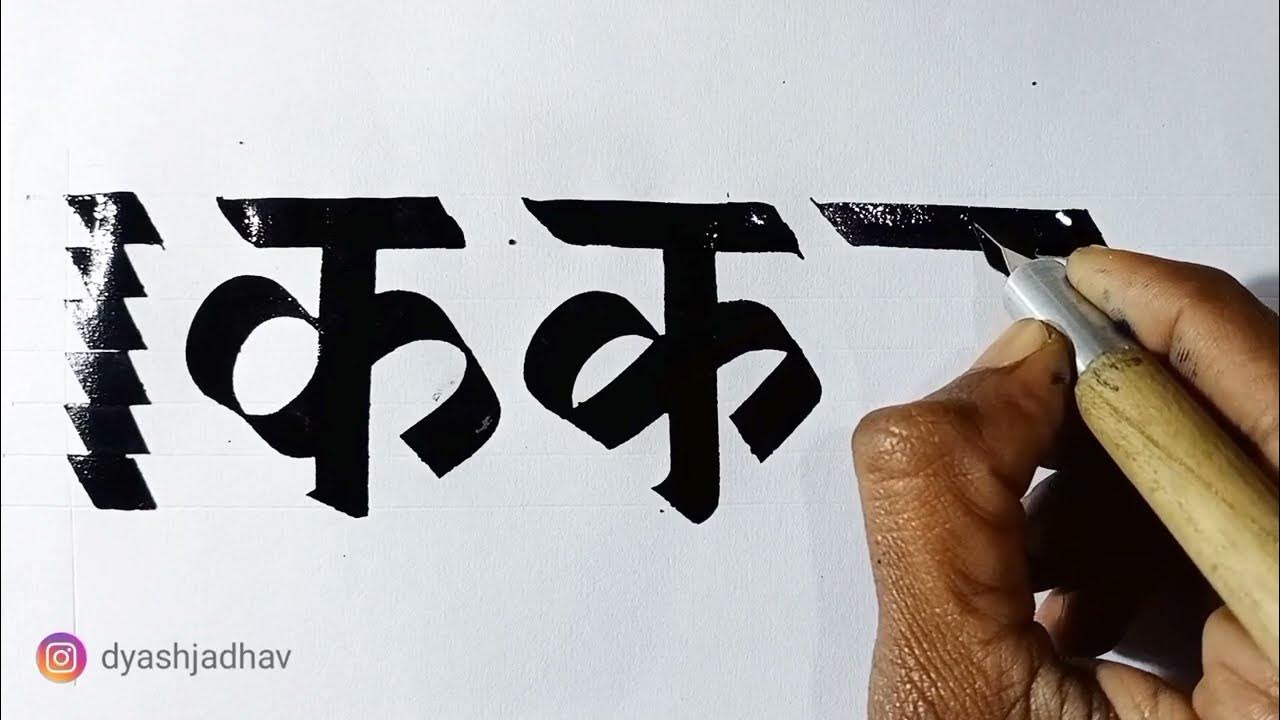 क क
dyashjadhav